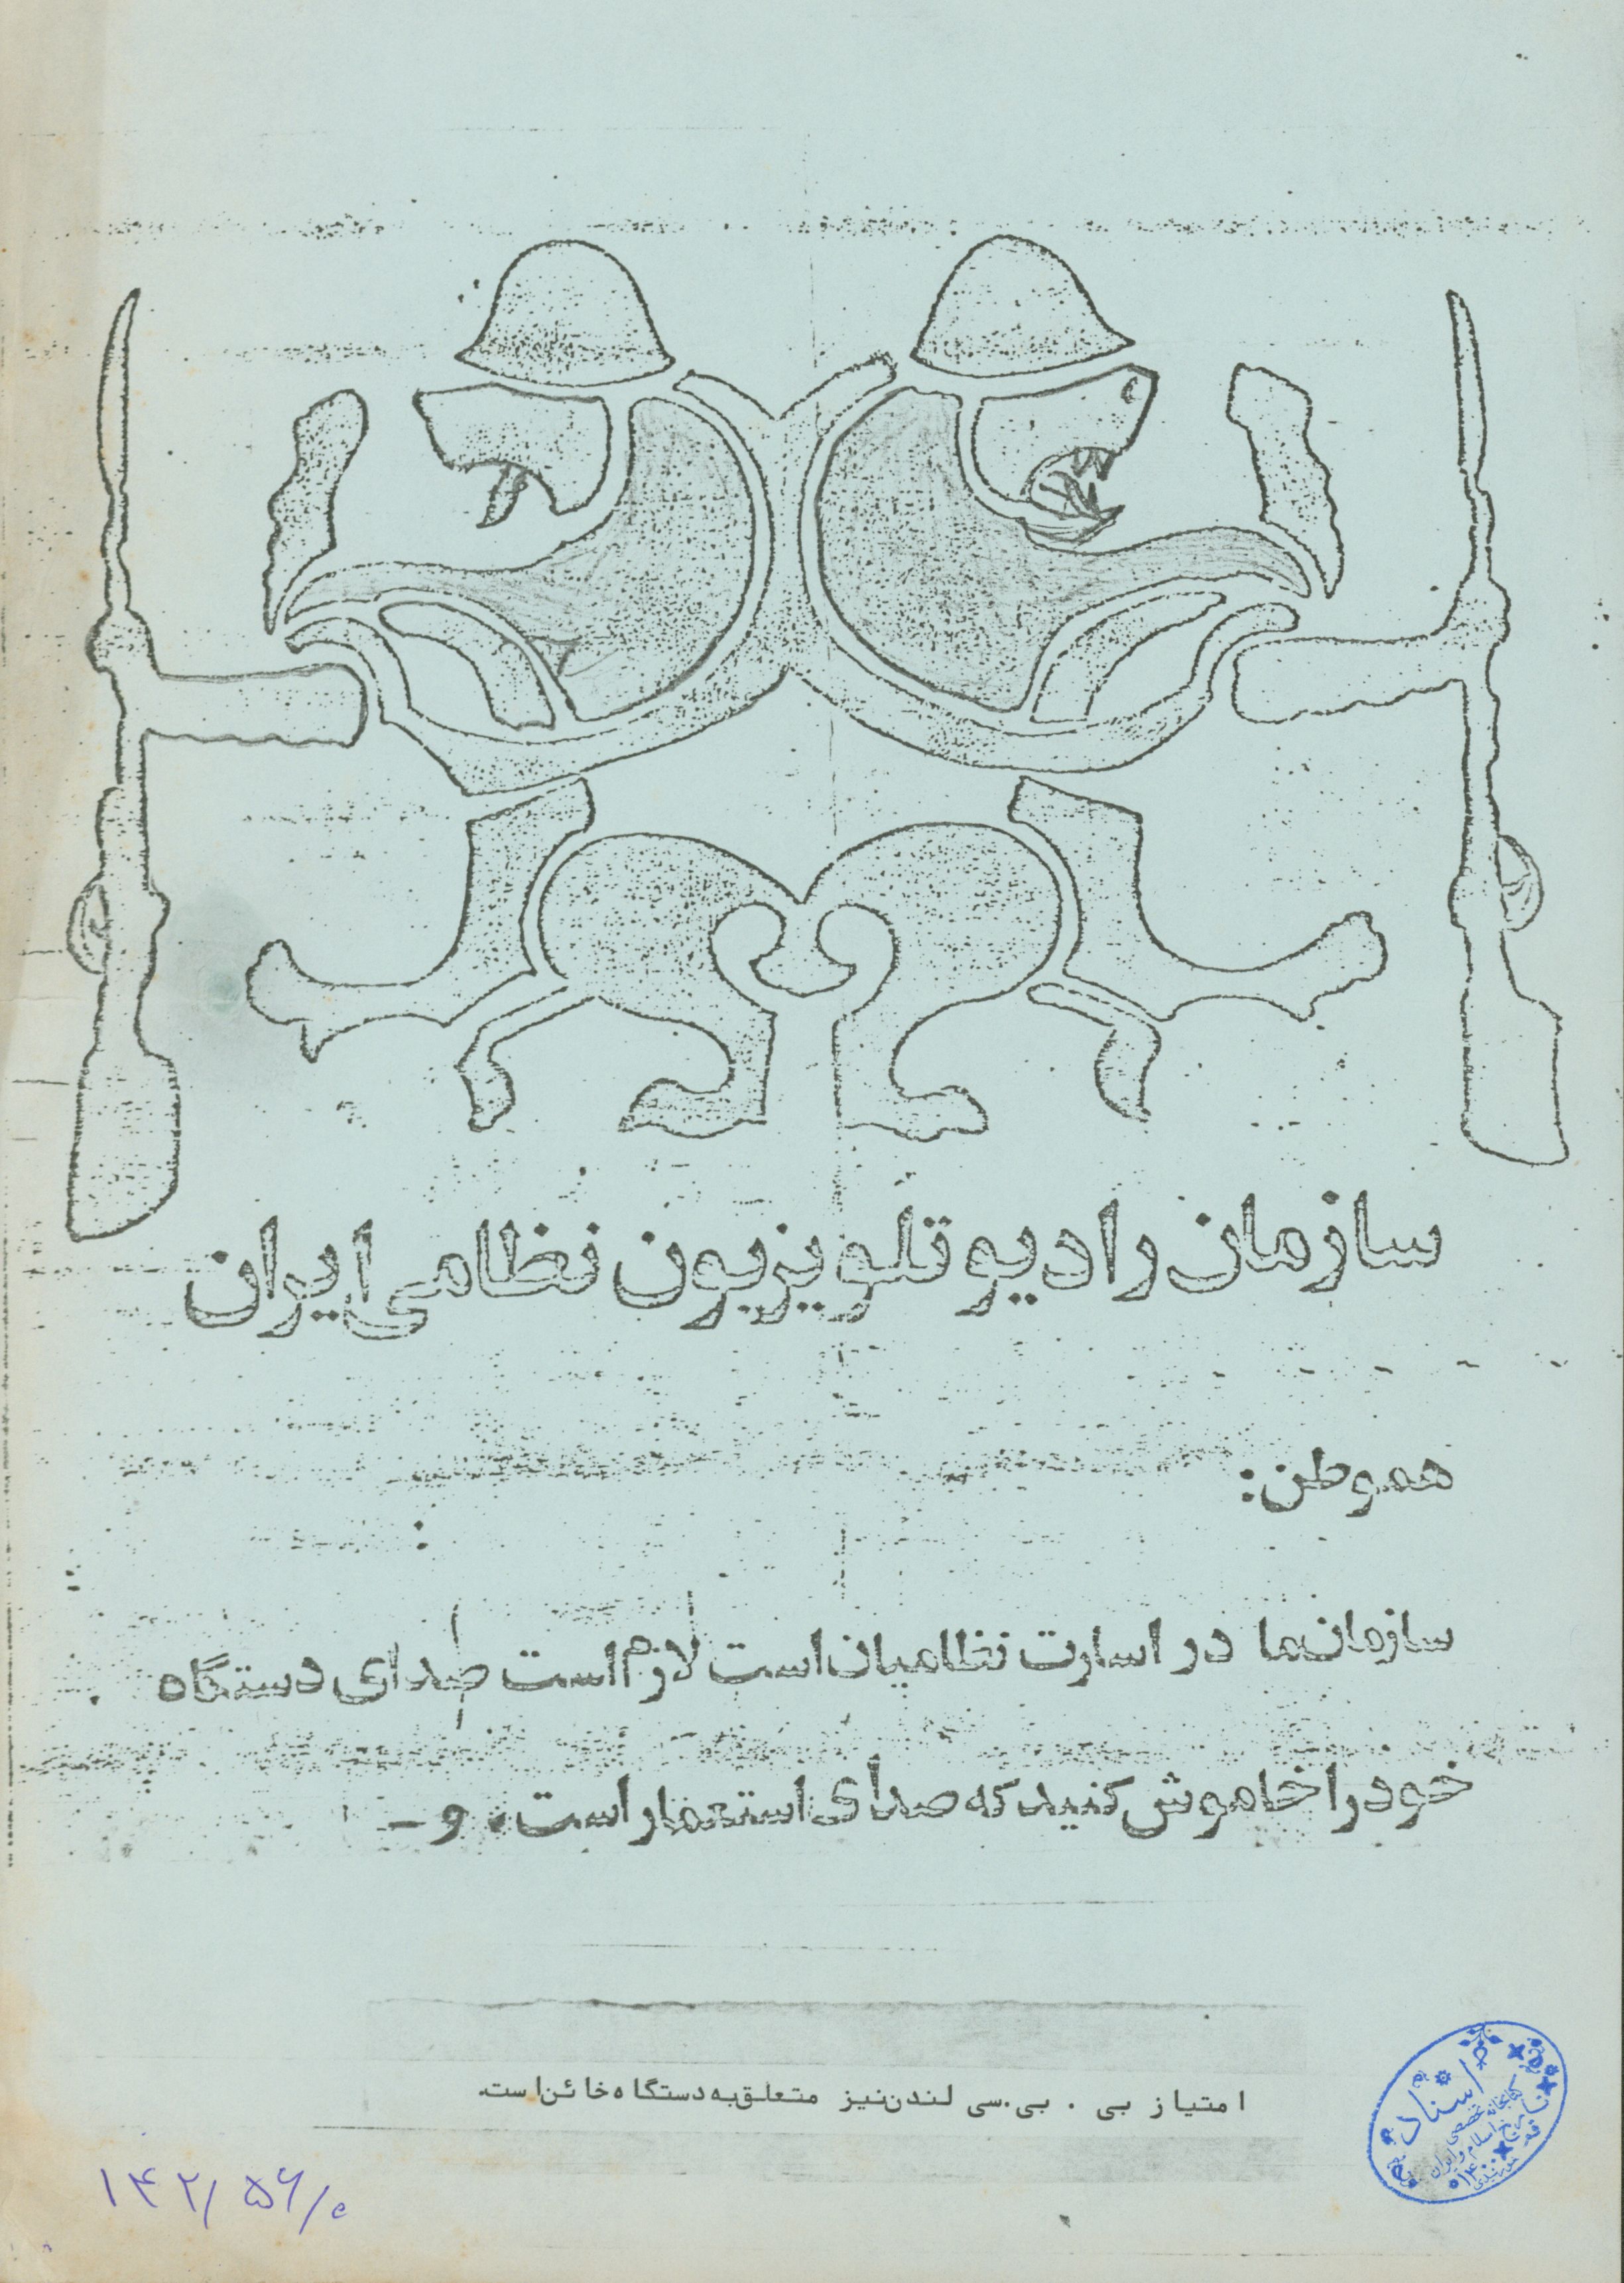 سازمان رادیو تلویزیون نظامی ایران
هموطن:
سازمان ما در اسارت نظامیان است لازم است صدای دستگاه
خود را خاموش کنید که صدای استعمار است. و-
امتیاز بی . بی.سی لندن نیز متعلق به دستگاه خائن است.
اسناد
کتابخانه تخصصی
تاریخ اسلام و ایران
۱۴۲/۵۶/۰